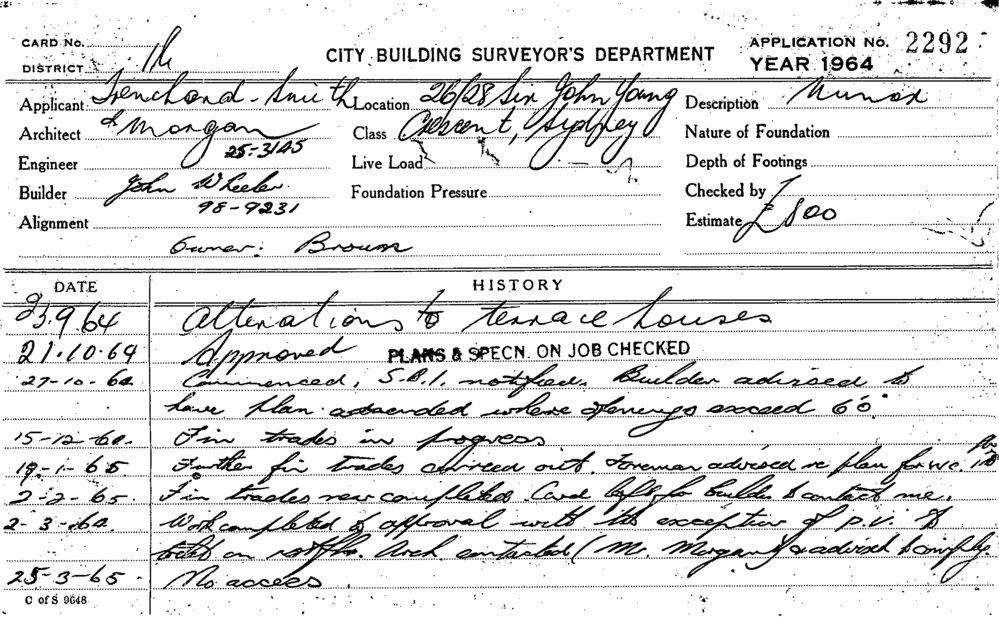 CARD No.
DISTRICT
CITY BUILDING SURVEYOR'S DEPARTMENT
APPLICATION No. 2292
YEAR 1964
Applicant Trenchard-Smith
Location 26/28 Sir John Young
Description Minor
Architect & Morgan
25-3145
Class Crescent, Sydney
Nature of Foundation
Engineer
Live Load
Depth of Footings
Builder John Wheeler
98-9231
Foundation Pressure
Checked by
Alignment
Estimate £800
Owner: Brown
DATE
HISTORY
23.9.64 Alterations to terrace houses
21.10.64 Approved PLANS & SPECN. ON JOB CHECKED
27-10-64 Commenced, S.B.I. notified. Builder advised to
have plan amended where openings exceed 6'0"
15-12-64. Fin trades in progress
19-1-65 Further fin trades carried out. Foreman advised re plan for W.C.
2-2-65. Fin trades near completed. Card left for builder to contact me.
2-3-64. Work completed to approval with the exception of p.v. to
toilet on Arch contacted (M. Morgan) & advised to comply
25-3-65. No access.
C of S 9648